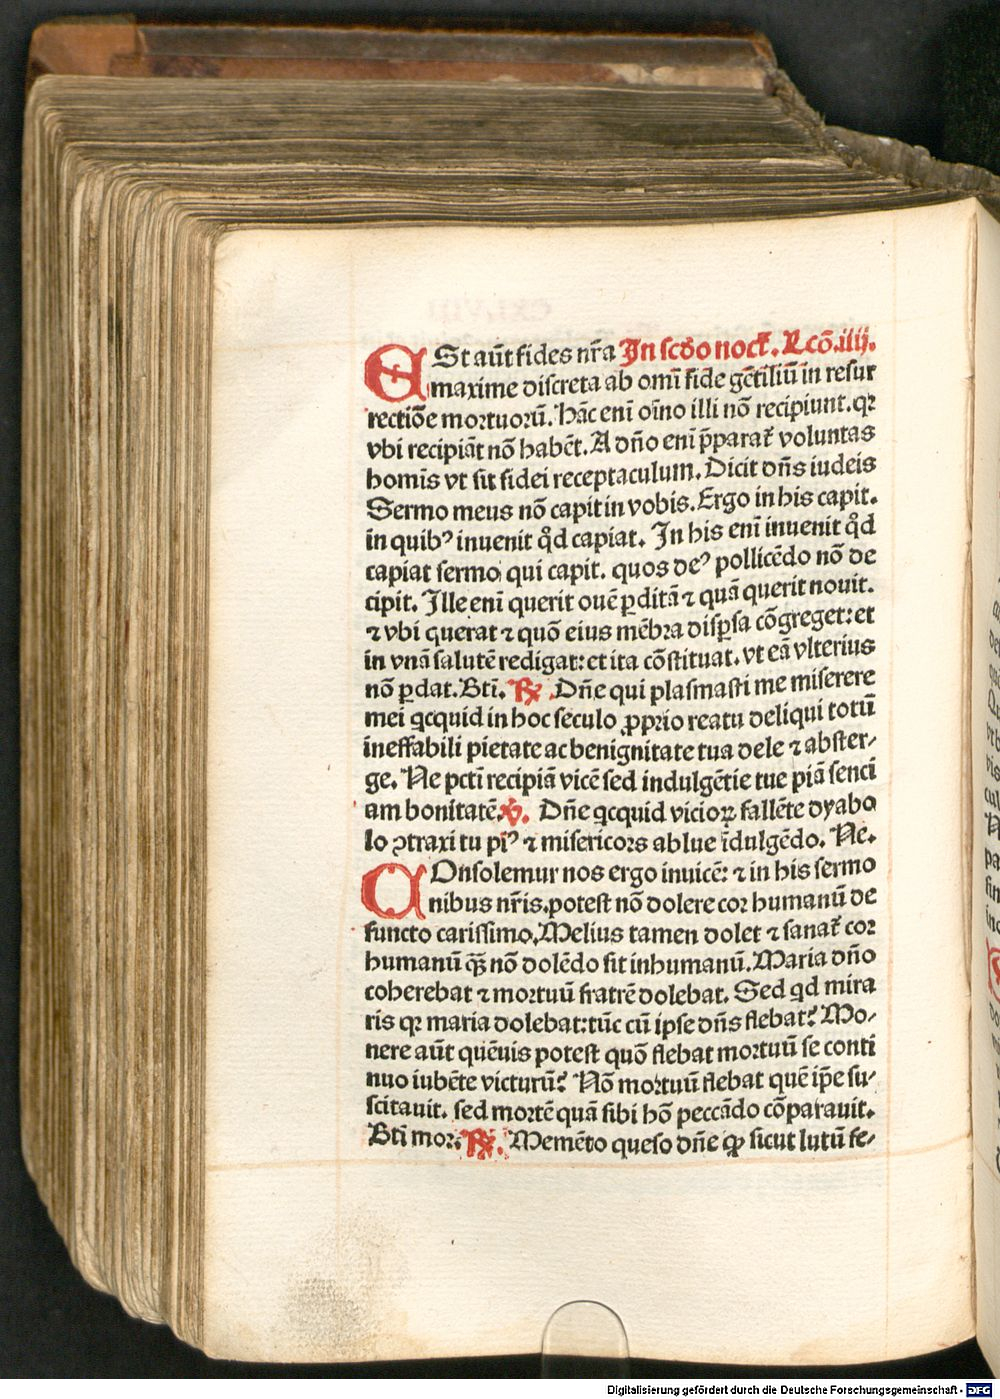 ESt aūt fides nr̄a In scd̄o noct̄. Lc̄o.iiij.
maxime discreta ab om̄i fide gētiliū in resur
rectiōe mortuoꝝ̄. Hāc enī oīno illi nō recipiunt. qꝛ
vbi recipiāt nō habēt. A dn̄o enī p̄parat̄ voluntas
homīs vt sit fidei receptaculum. Dicit dn̄s iudeis
Sermo meus nō capit in vobis. Ergo in his capit.
in quibꝰ inuenit qd̄ capiat. In his enī inuenit qd̄
capiat sermo qui capit. quos deꝰ pollicēdo nō de
cipit. Ille enī querit ouē ꝑditā ⁊ quā querit nouit.
⁊ vbi querat ⁊ quō eius mēbra disꝑsa cōgreget: et
in vnā salutē redigat: et ita cōstituat. vt eā vlterius
nō ꝑdat. Bti̅. ℟. Dn̄e qui plasmasti me miserere
mei qcquid in hoc seculo ꝓprio reatu deliqui totū
ineffabili pietate ac benignitate tua dele ⁊ abster⸗
ge. Ne pctī recipiā vicē sed indulgētie tue piā senci
am bonitatē. ℣. Dn̄e qcquid vicioꝝ fallēte dyabo
lo ꝯtraxi tu piꝰ ⁊ misericors ablue īdulgēdo. Ne.
COnsolemur nos ergo inuicē: ⁊ in his sermo
nibus nr̄is. potest nō dolere cor humanū de
functo carissimo. Melius tamen dolet ⁊ sanat̄ cor
humanū qꝫ̄ nō dolēdo fit inhumanū. Maria dn̄o
coherebat ⁊ mortuū fratrē dolebat. Sed qd mira
ris qꝛ maria dolebat: tūc cū ipse dn̄s flebat? Mo⸗
nere aūt quēuis potest quō flebat mortuū se conti
nuo iubēte victurū? Nō mortuū flebat quē ip̄e su⸗
scitauit. sed mortē quā sibi hō peccādo cōparauit.
Btī mor. ℟. Memēto queso dn̄e ꝙ sicut lutū fe⸗
Digitalisierung gefördert durch die Deutsche Forschungsgemeinschaft - DFG